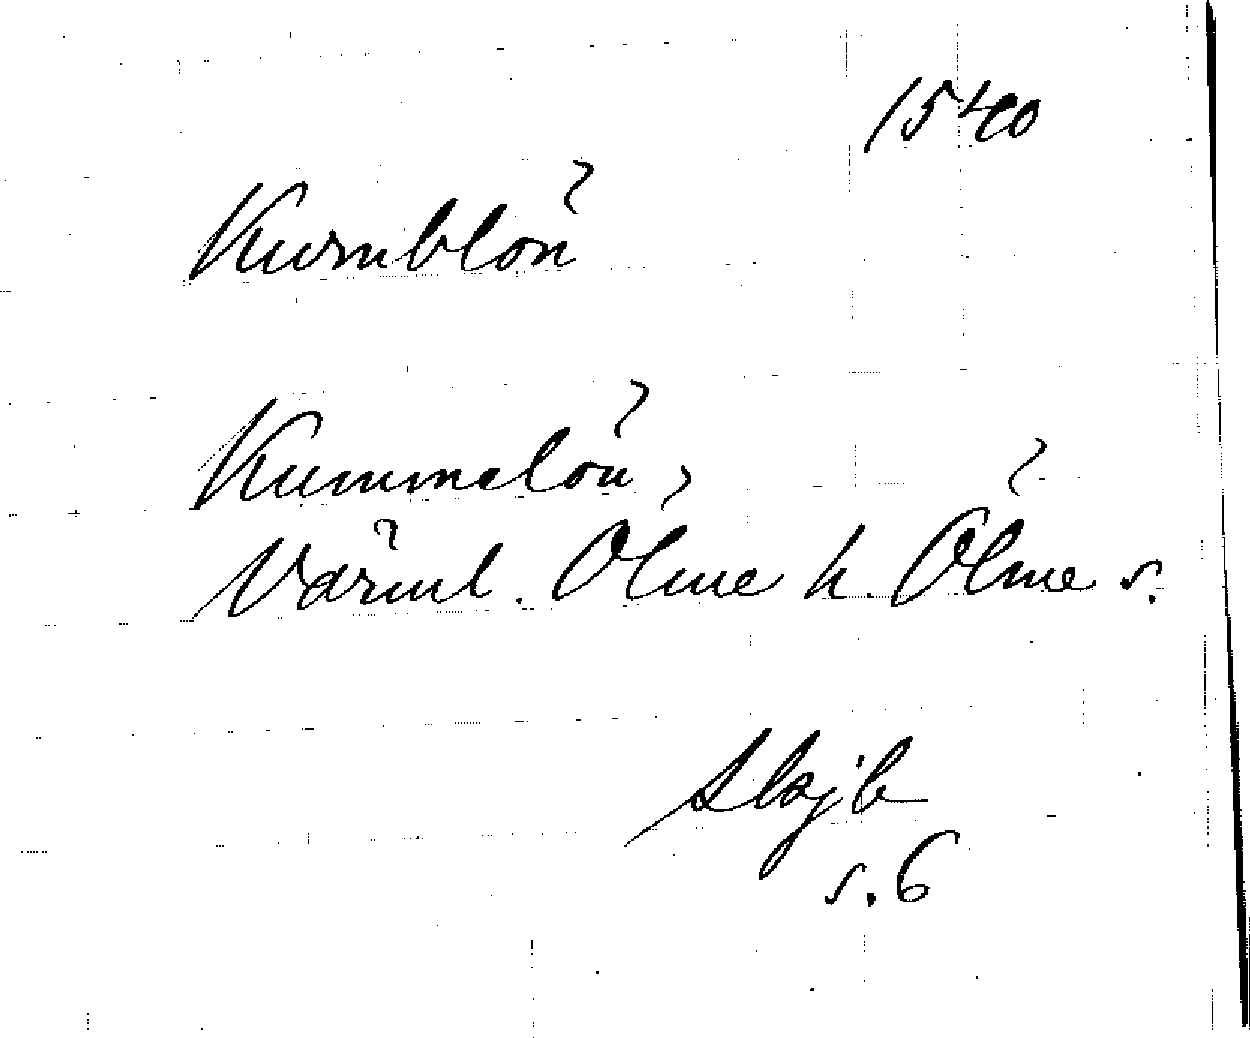 1540
Kumblön
Kummelön,
Värml. Ölme h. Ölme s.
Skjb
s. 6